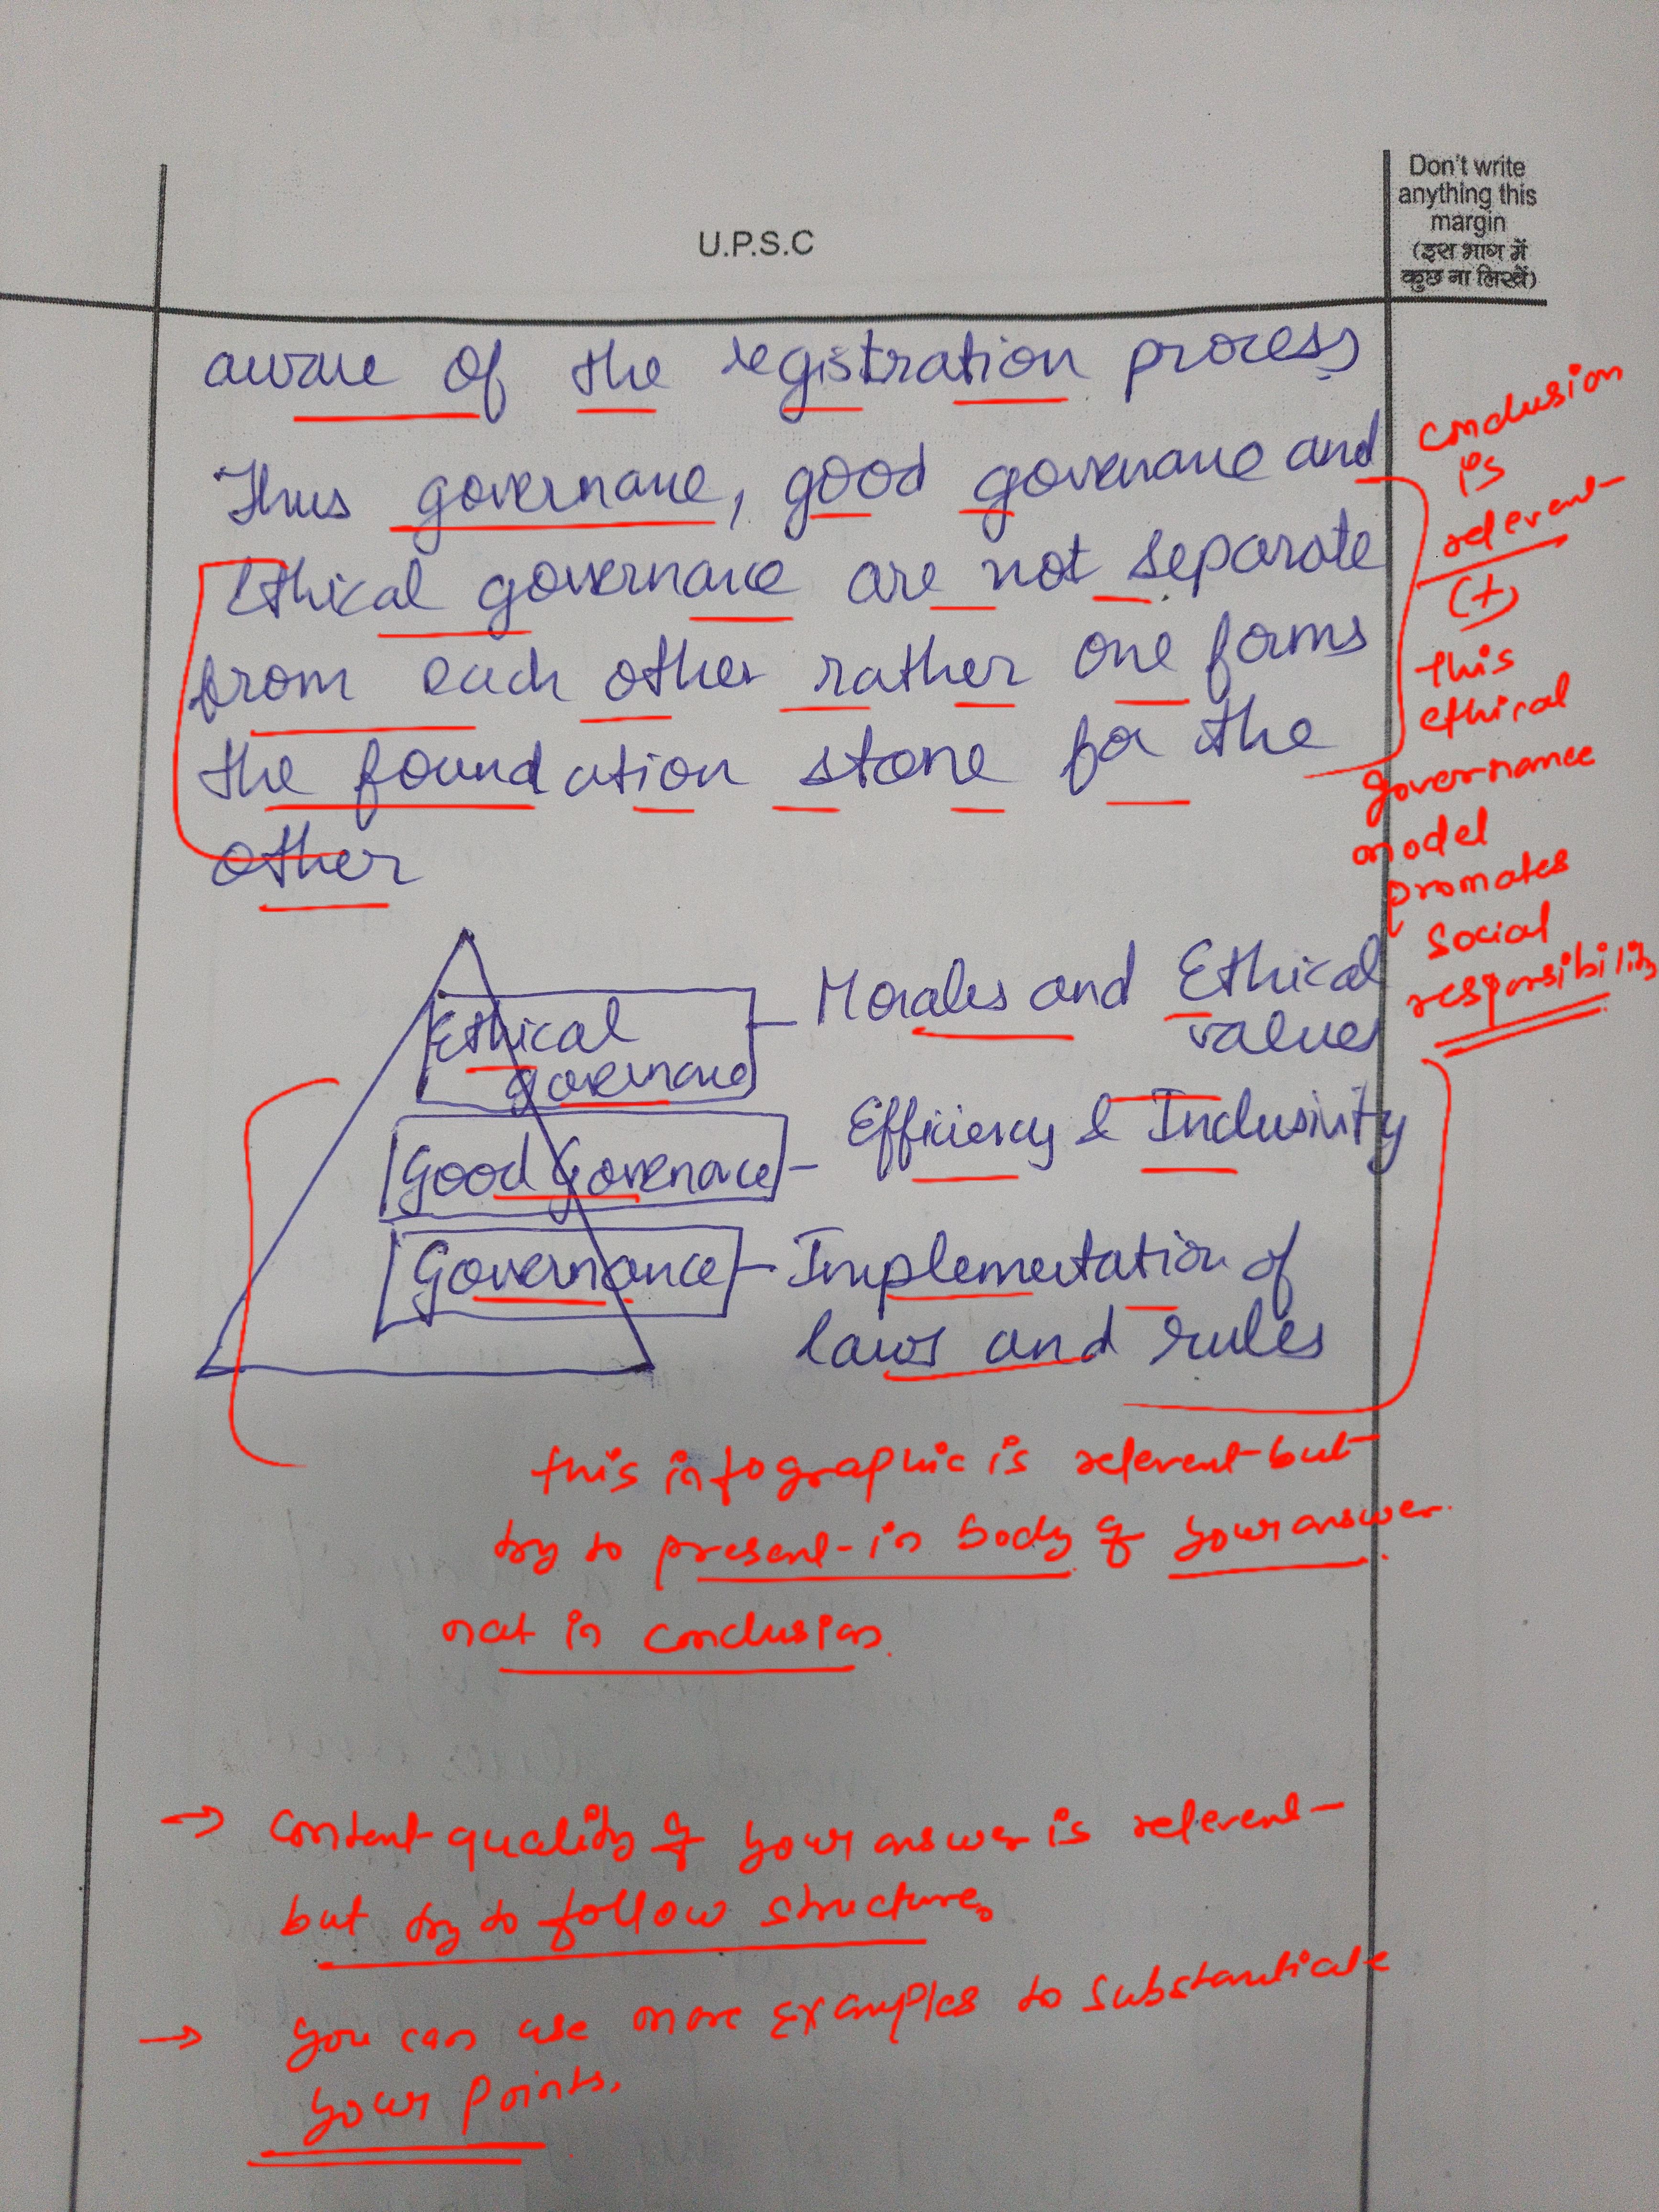 Don't write
anything this
margin
(इस भाग में
कुछ ना लिखें)
U.P.S.C
aware of the registration process
Thus governance, good governance and
Ethical governance are not separate
from each other rather one forms
the foundation stone for the
other
conclusion
is
relevent
(+)
this
ethical
governance
model
promotes
social
responsibility
Ethical
governance
Morales and Ethical
values
Good Governace
Efficiency & Inclusivity
Governance
Implementation of
laws and rules
this infographic is relevent but
try to present in body of your answer
not in conclusion.
→ content quality of your answer is relevent
but try to follow structure.
→ you can use more examples to substantiate
your points.